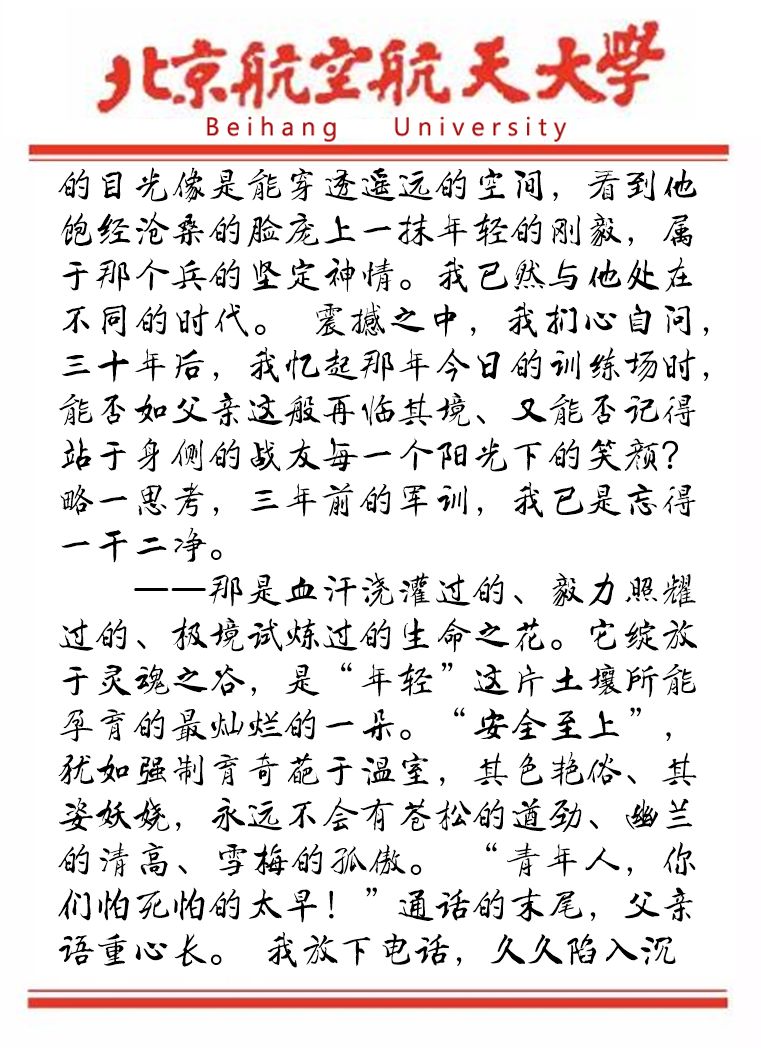 北京航空航天大學
Beihang University
的目光像是能穿透遥远的空间，看到他
饱经沧桑的脸庞上一抹年轻的刚毅，属
于那个兵的坚定神情。我已然与他处在
不同的时代。 震撼之中，我扪心自问，
三十年后，我忆起那年今日的训练场时，
能否如父亲这般再临其境、又能否记得
站于身侧的战友每一个阳光下的笑颜？
略一思考，三年前的军训，我已是忘得
一干二净。
——那是血汗浇灌过的、毅力照耀
过的、极境试炼过的生命之花。它绽放
于灵魂之谷，是“年轻”这片土壤所能
孕育的最灿烂的一朵。“安全至上”，
犹如强制育奇葩于温室，其色艳俗、其
姿妖娆，永远不会有苍松的遒劲、幽兰
的清高、雪梅的孤傲。 “青年人，你
们怕死怕的太早！”通话的末尾，父亲
语重心长。 我放下电话，久久陷入沉